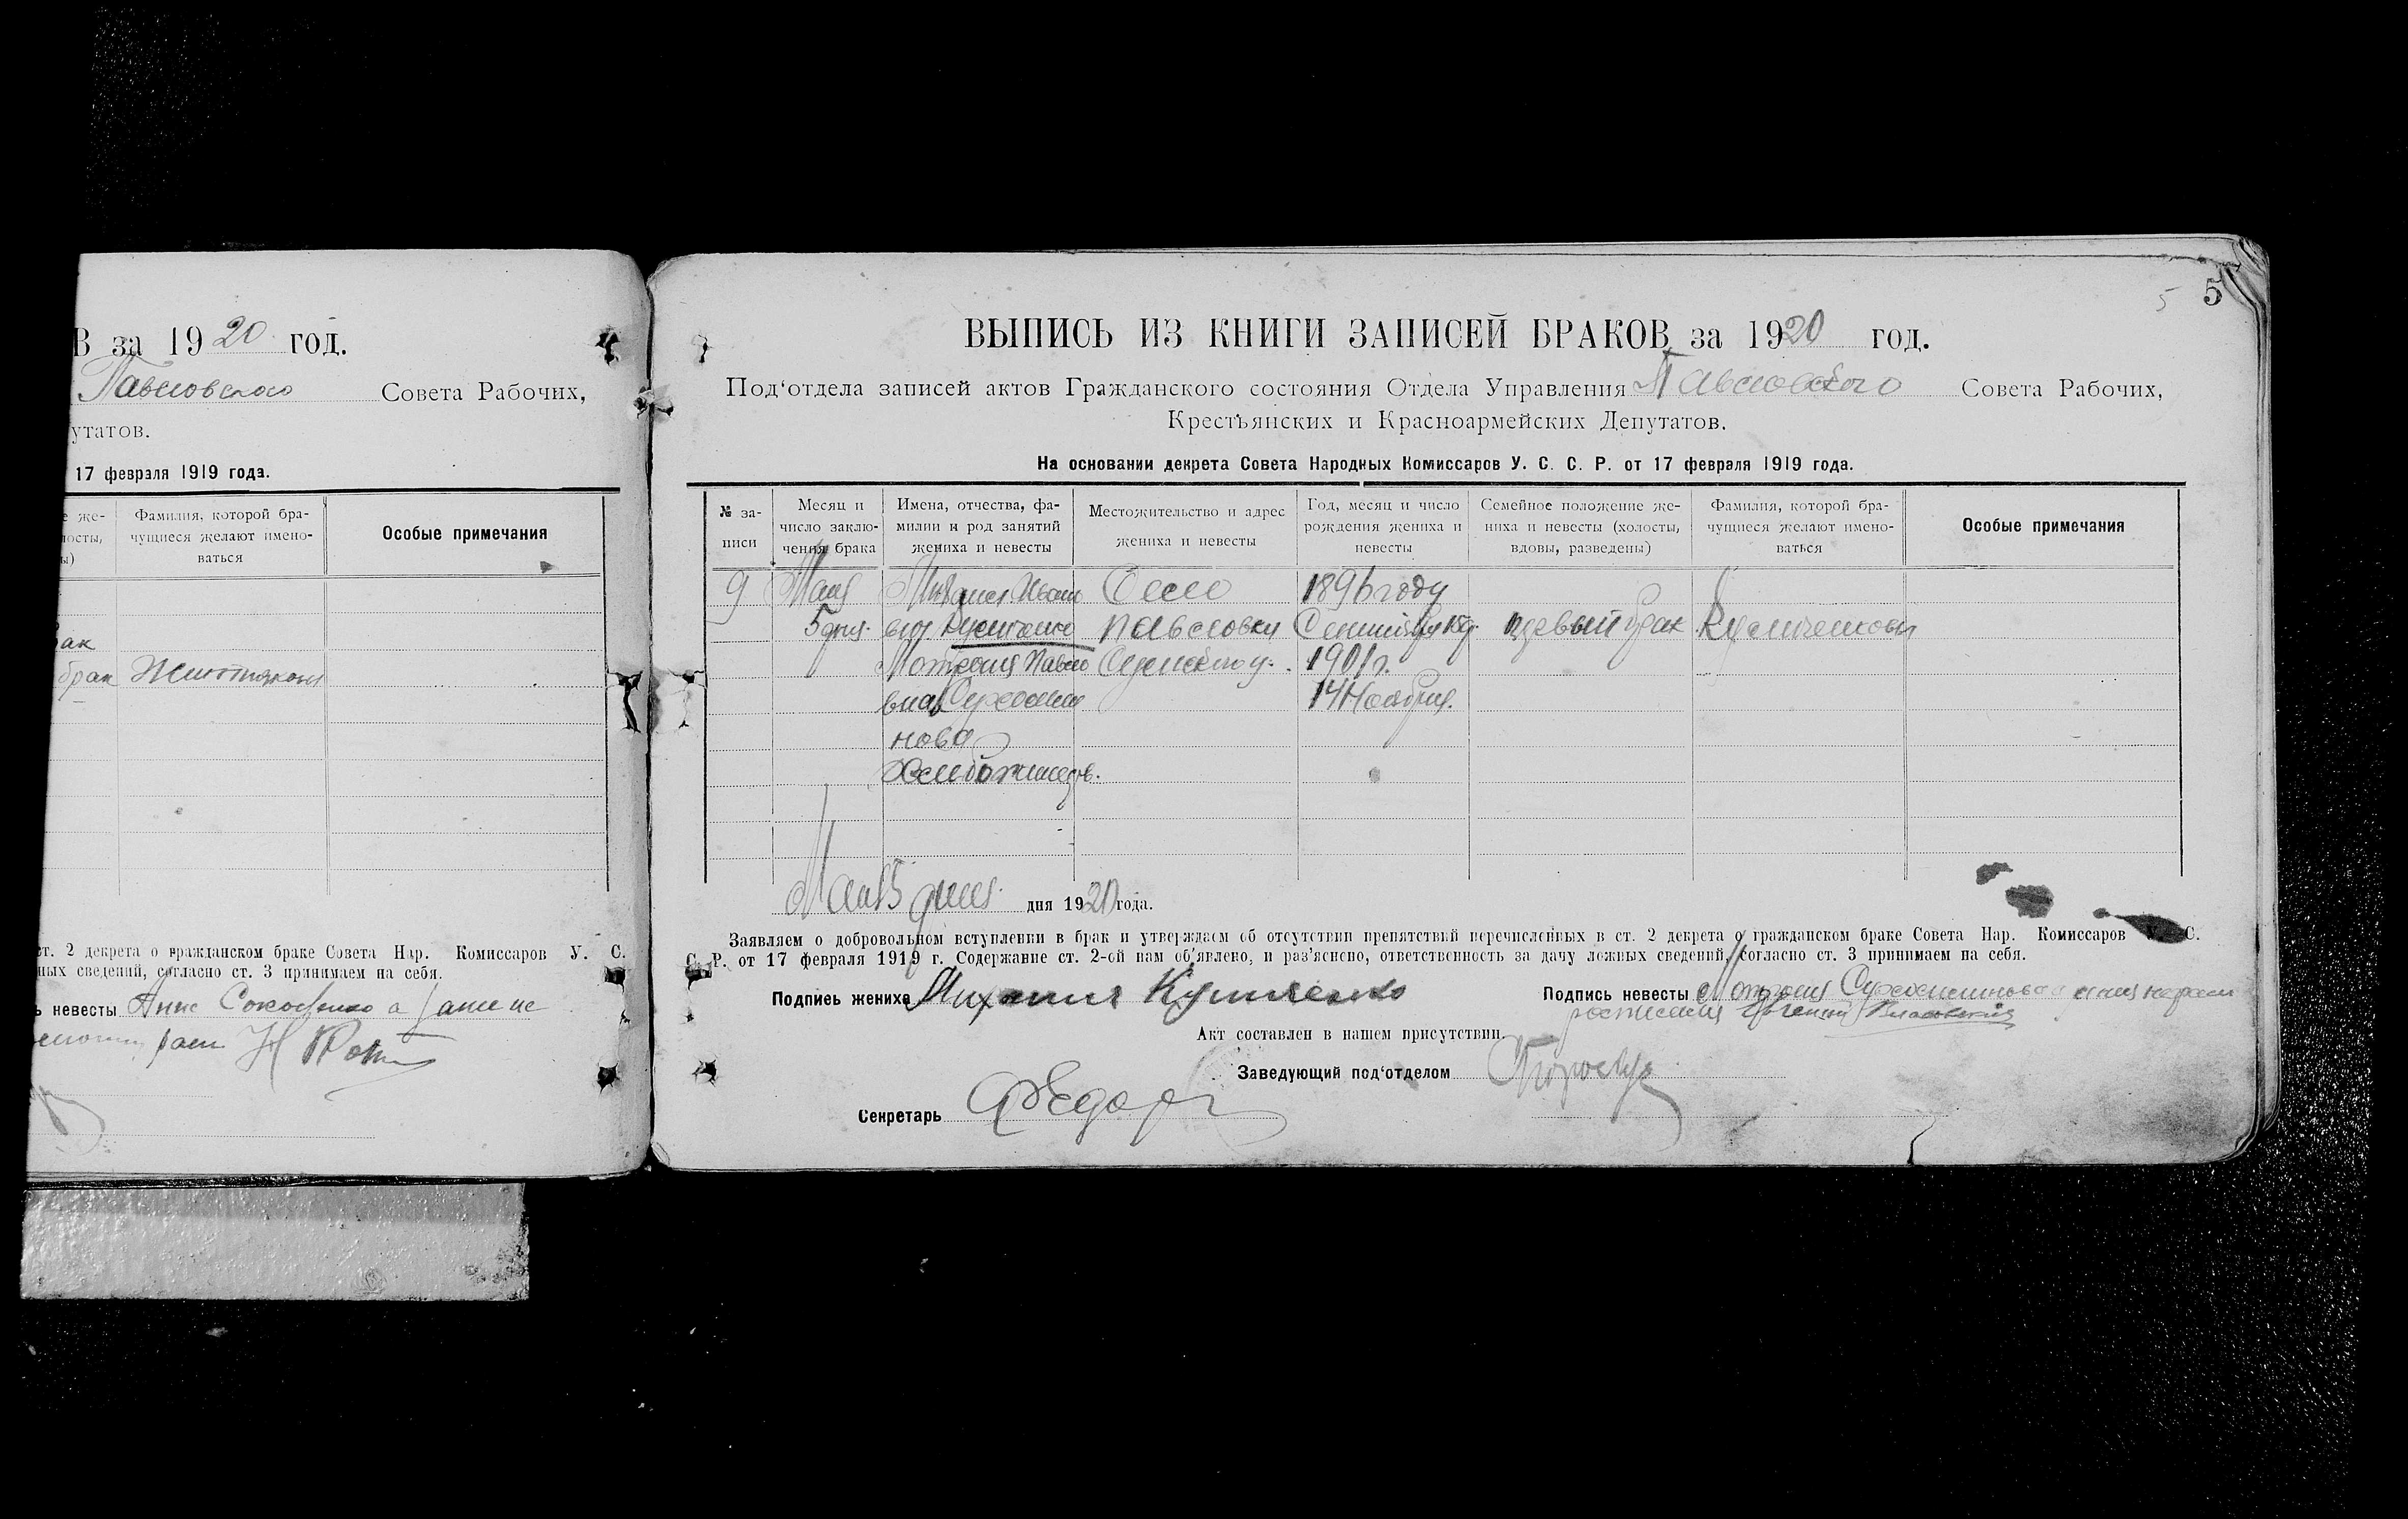 В за 1920 год.
Павловского Совета Рабочих,
утатов.
17 февраля 1919 года.
е же-
лосты,
ы)
Фамилия, которой бра-
чущиеся желают имено-
ваться
Особые примечания
брак
ст. 2 декрета о гражданском браке Совета Нар. Комиссаров У. С.
ных сведений, согласно ст. 3 принимаем на себя.
ь невесты Анна
5 5
ВЫПИСЬ ИЗ КНИГИ ЗАПИСЕЙ БРАКОВ за 1920 год.
Под‘отдела записей актов Гражданского состояния Отдела Управления Павловского Совета Рабочих,
Крестьянских и Красноармейских Депутатов.
На основании декрета Совета Народных Комиссаров У. С. С. Р. от 17 февраля 1919 года.
№ за-
писи
Месяц и
число заклю-
чения брака
Имена, отчества, фа-
милии и род занятий
жениха и невесты
Местожительство и адрес
жениха и невесты
Год, месяц и число
рождения жениха и
невесты
Семейное положение же-
ниха и невесты (холосты,
вдовы, разведены)
Фамилия, которой бра-
чущиеся желают имено-
ваться
Особые примечания
9 Мая Михаил Ивано Село 1896 году
5 дня. вич Павловки первый брак
Мотрона Павло 1901 г.
вна Сухомли 14 Ноября.
нова
Хлебопашедв.
Мая 5 дня дня 1920 года.
Заявляем о добровольном вступлении в брак и утверждаем об отсутствии препятствий перечисленных в ст. 2 декрета о гражданском браке Совета Нар. Комиссаров С.
С. Р. от 17 февраля 1919 г. Содержание ст. 2-ой нам об'явлено, и раз'яснено, ответственность за дачу ложных сведений, согласно ст. 3 принимаем на себя.
Подпись жениха Михаил
Подпись невесты Мотрона Сухомлинова
Акт составлен в нашем присутствии.
Заведующий под‘отделом
Секретарь